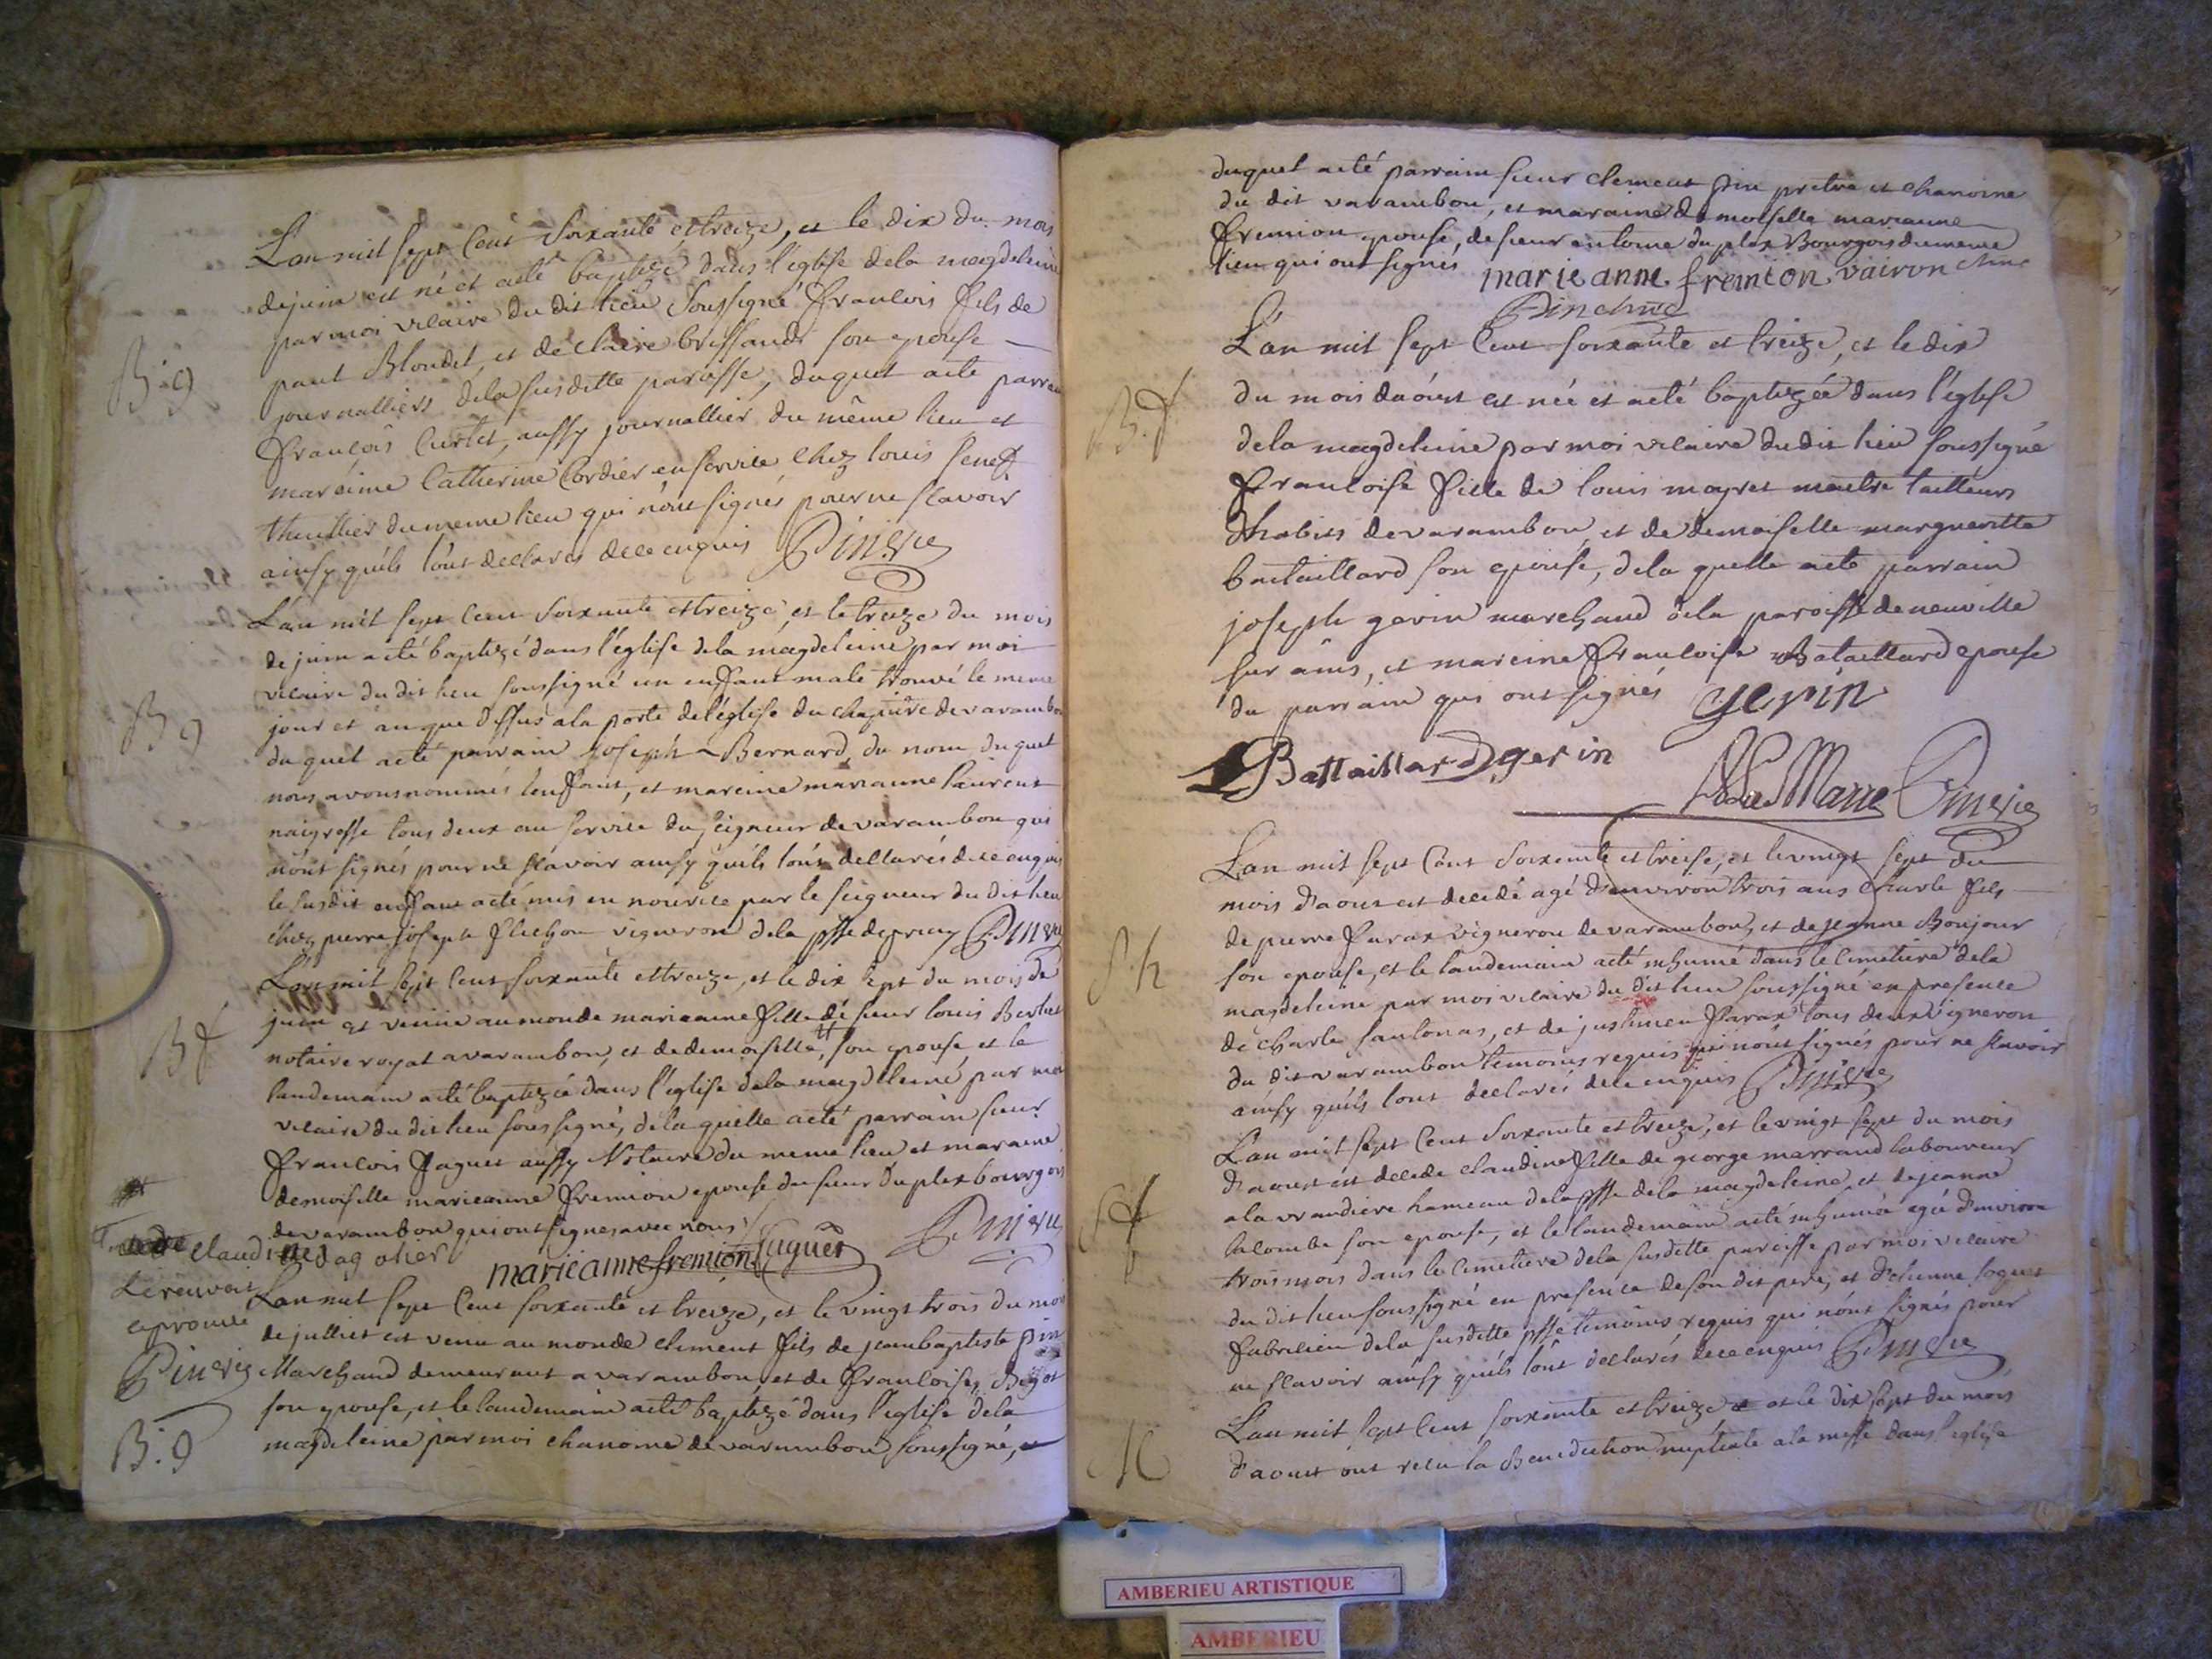 L'an mil sept Cent Soixante et treize, et le dix du mois
de juin est né et a été baptizé dans l'église de la magdeleine
par moi vicaire du dit lieu soussigné francois fils de
B. g
paul Blondet, et de claire brissaud son epouse
journalliers de la susditte paroisse, duquel a été parrein
francois Curtet, aussy journallier du même lieu et
mareine Catherine Cordier en service chez louis
du meme lieu qui n'ont signés pour ne scavoir
ainsy qu'ils l'ont declarés de ce enquis
L'an mil sept cent soixante et treize, et le treize du mois
de juin a été baptizé dans l'église de la magdeleine par moi
vicaire du dit lieu soussigné un enfant male trouvé le meme
B g
jour et an que dessus a la porte de l'église du chapitre de varambon
du quel a été parrain joseph Bernard, du nom duquel
nous avons nommés l'enfant, et mareine marianne laurent
naigresse tous deux au service du seigneur de varambon qui
n'ont signés pour ne scavoir ainsy qu'ils l'ont declarés de ce enquis
le susdit enfant a été mis en nourice par le seigneur du dit lieu
chez pierre joseph vigneron de la psse de priay
L'an mil sept cent soixante et treize, et le dix sept du mois de
B f
juin est venue au monde marieanne fille de sieur louis
notaire royal a varambon, et de demoiselle, son epouse, et le
landemain a été baptizée dans l'église de la magdeleine par moi
vicaire du dit lieu soussigné, de la quelle a été parrain sieur
francois Jaguet aussy Notaire du meme lieu et maraine
demoiselle marieanne fremion epouse du sieur Duplex bourgois
de varambon qui ont signés avec nous
claudine
marieanne fremion Jaguet
aprouvé
L'an mil sept Cent soixante et treize, et le vingt trois du mois
de julliet est venu au monde clement fils de jeanbaptiste pin
Marchand demeurant a varambon, et de francoise
son epouse, et le landemain a été baptizé dans l'église de la
B. g
magdeleine par moi chanoine de varambon soussigné,
duquel a été parrain sieur clement pin pretre et chanoine
du dit varambon, et maraine demoiselle marianne
fremion epouse, de sieur antoine duplex Bourgois du meme
lieu qui ont signés marie anne fremion vairon
Pin
L'an mil sept Cent soixante et treize, et le dix
B. f
du mois daoust est née et a été baptizée dans l'église
de la magdeleine par moi vicaire du dit lieu soussigné
francoise fille de louis mayret maitre tailleurs
dhabits de varambon, et de demoiselle margueritte
bataillard son epouse, de la quelle a été parrain
joseph gerin marchand de la paroisse de neuville
sur ains, et mareine francoise Bataillard epouse
du parrain qui ont signés gerin
Battaillard gerin
L'an mil sept Cent soixante et treise, et le vingt sept du
mois d'aout est decedé agé d'environ trois ans Charle fils
de pierre farax vigneron de varambon, et de jeanne Bonjour
son epouse, et le landemain a été inhumé dans le Cimetiere de la
magdeleine par moi vicaire du dit lieu soussigné en presence
de Charle et de farax tous deux vigneron
du dit varambon temoins requis qui n'ont signés pour ne scavoir
ainsy qu'ils l'ont declarés de ce enquis
L'an mil sept Cent soixante et treize, et le vingt sept du mois
d'aoust est decedé claudine fille de george marraud laboureur
a la hameau de la psse de la magdeleine, et de jeanne
lacombe son epouse, et le landemain a été inhumée agée d'environ
trois mois dans le Cimetiere de la susditte paroisse par moi vicaire
du dit lieu soussigné en presence de son dit pere, et d'etienne
fabricien de la susditte psse temoins requis qui n'ont signés pour
ne scavoir ainsy qu'ils l'ont declarés de ce enquis
L'an mil sept Cent soixante et treize et le dix sept du mois
M
d'aoust ont recu la Benediction nuptiale a la messe dans l'église
AMBERIEU ARTISTIQUE
AMBERIEU